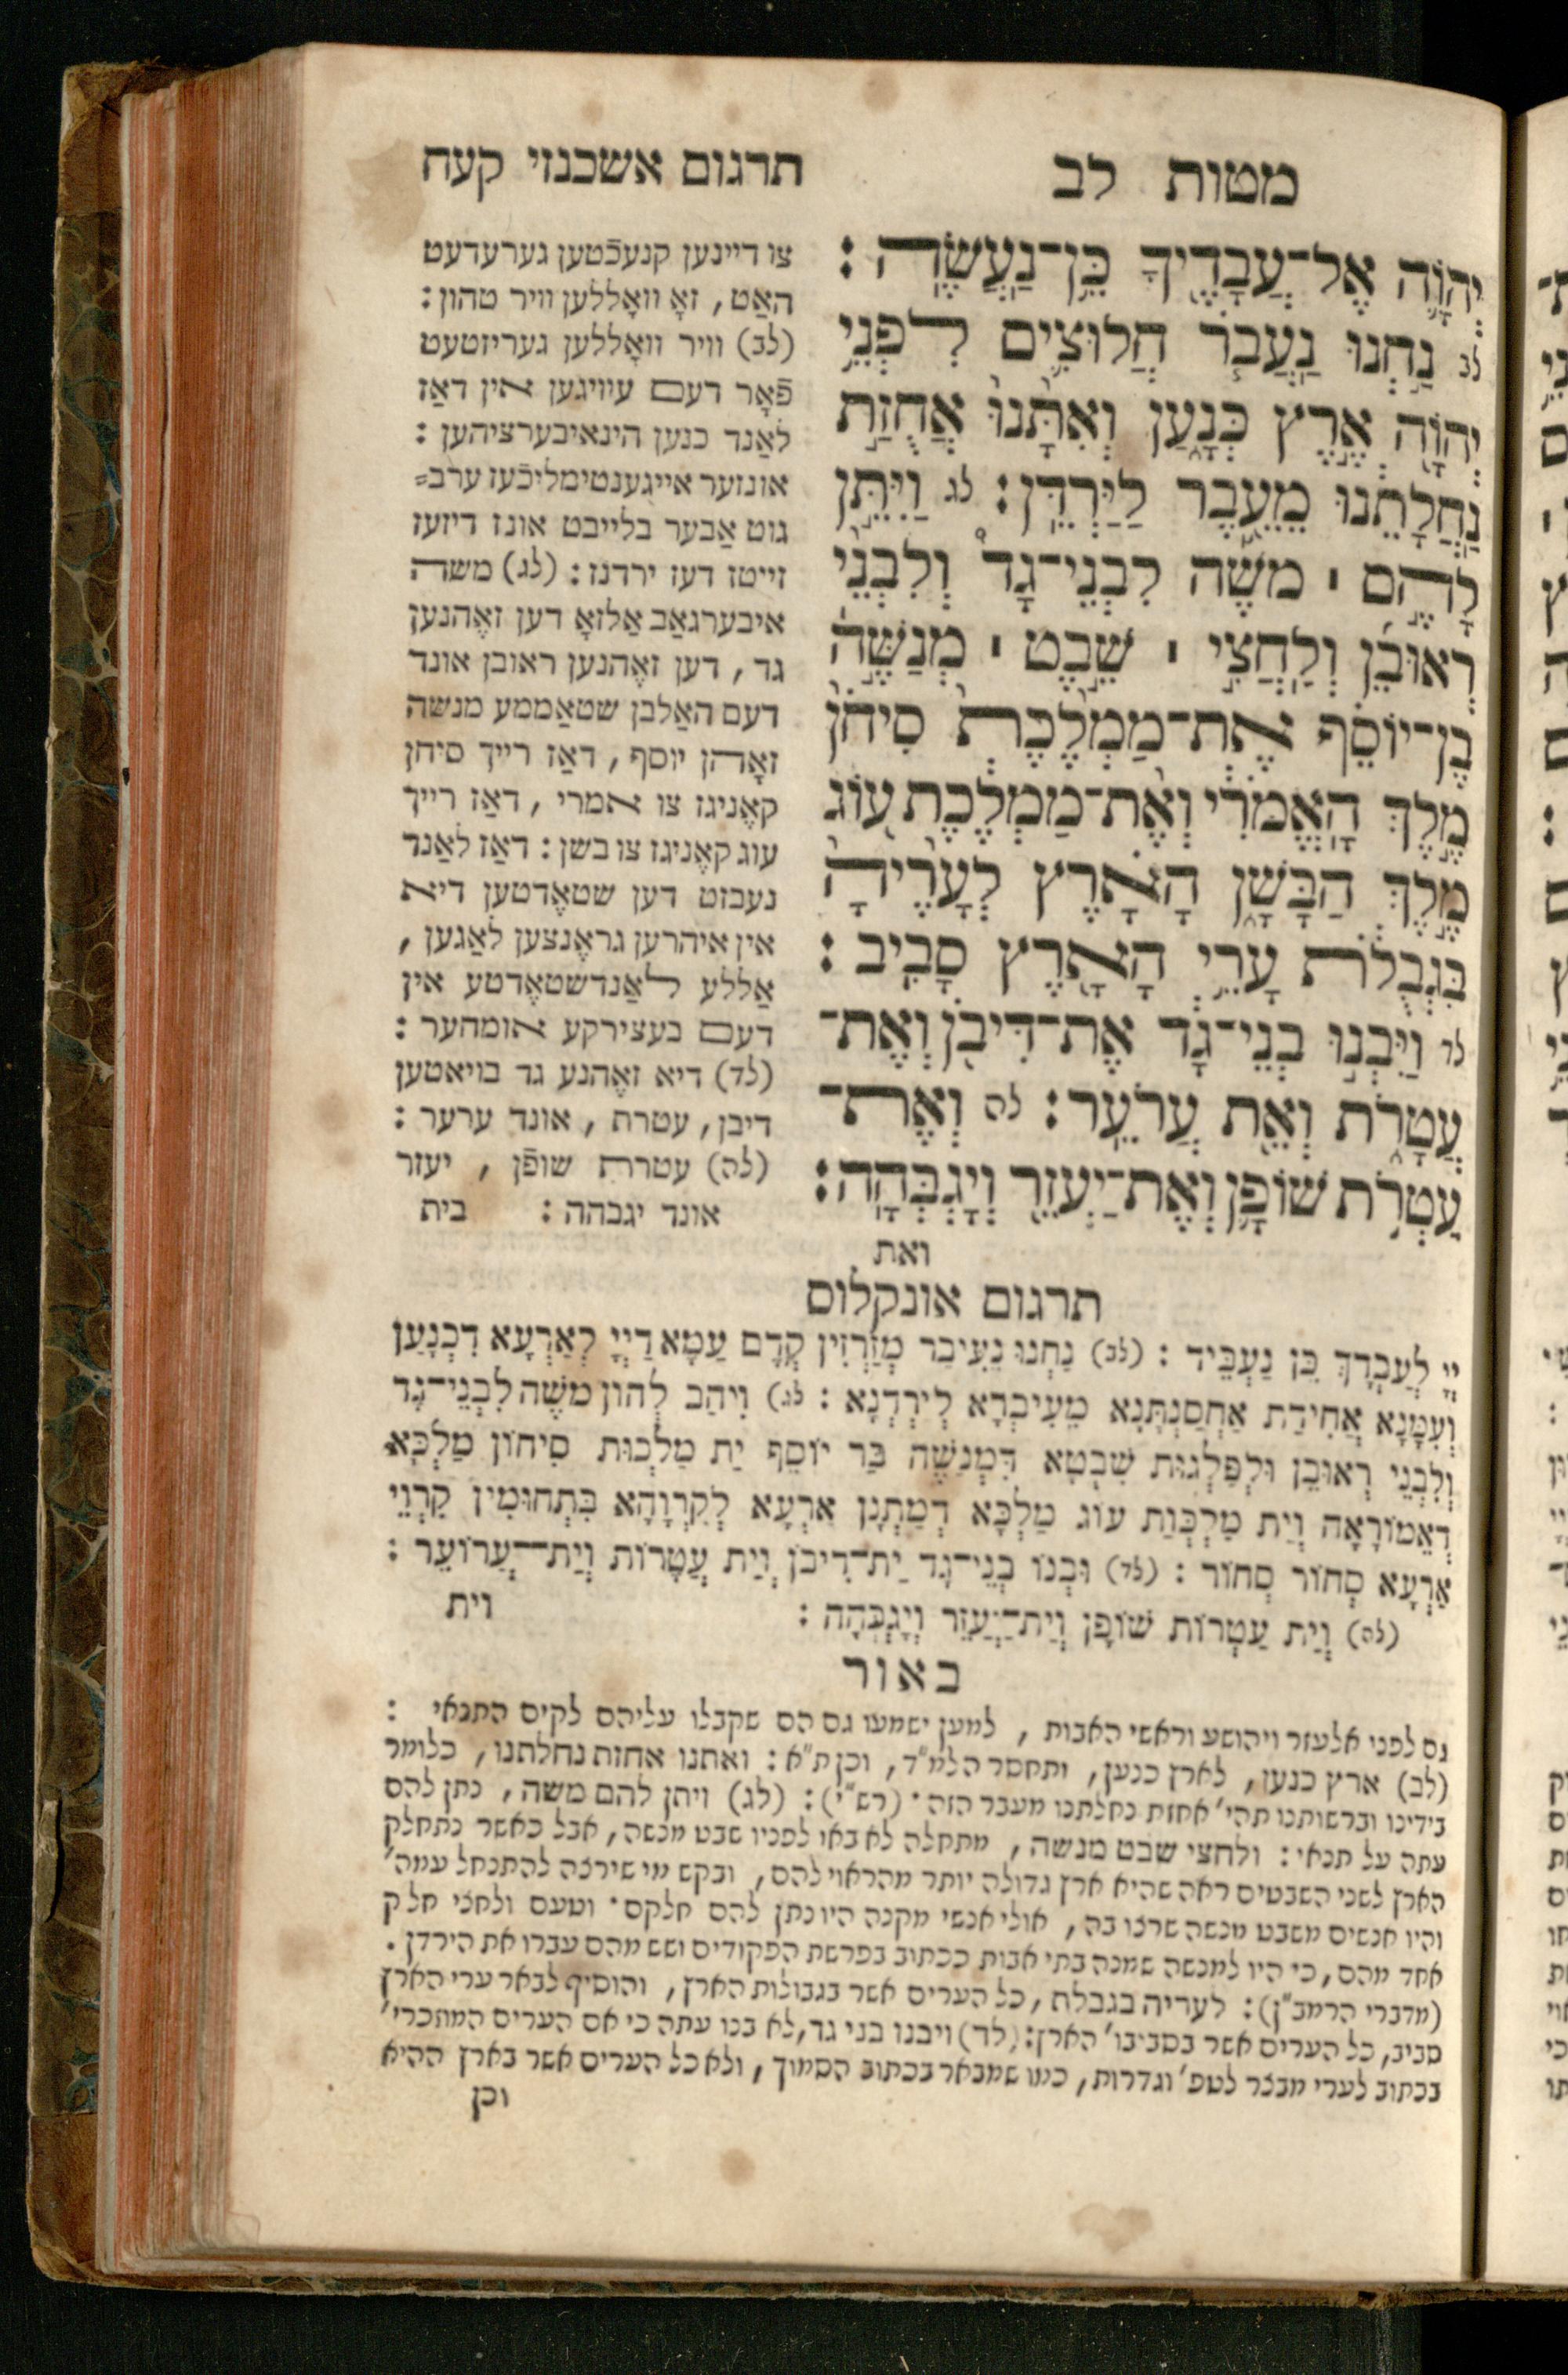 מטות לב
תרגום אשכנזי קעח
יְהוָֹ֛ה אֶל־עֲבָדֶ֖יךָ כֵּ֥ן־נַעֲשֶֽׂה׃
לב נַ֣חְנוּ נַעֲבֹ֧ר חֲלוּצִ֛ים לִפְנֵ֥י
יְהוָֹ֖ה אֶ֣רֶץ כְּנָ֑עַן וְאִתָּ֙נוּ֙ אֲחֻזַּ֣ת
נַחֲלָתֵ֔נוּ מֵעֵ֖בֶר לַיַּרְדֵּֽן׃ לג וַיִּתֵּ֣ן
לָהֶ֣ם ׀ מֹשֶׁ֡ה לִבְנֵי־גָד֩ וְלִבְנֵ֨י
רְאוּבֵ֜ן וְלַחֲצִ֣י ׀ שֵׁ֣בֶט ׀ מְנַשֶּׁ֣ה
בֶן־יוֹסֵ֗ף אֶת־מַמְלֶ֙כֶת֙ סִיחֹן֙
מֶ֣לֶךְ הָֽאֱמֹרִ֔י וְאֶת־מַמְלֶ֔כֶת ע֖וֹג
מֶ֣לֶךְ הַבָּשָׁ֑ן הָאָ֗רֶץ לְעָרֶ֙יהָ֙
בִּגְבֻלֹ֔ת עָרֵ֥י הָאָ֖רֶץ סָבִֽיב׃
לד וַיִּבְנ֣וּ בְנֵי־גָ֔ד אֶת־דִּיבֹ֖ן וְאֶת־
עֲטָרֹ֑ת וְאֵ֖ת עֲרֹעֵֽר׃ לה וְאֶת־
עַטְרֹ֥ת שׁוֹפָ֛ן וְאֶת־יַעְזֵ֖ר וְיָגְבְּהָֽה׃
ואת
צו דיינען קנעכֿטען גערעדעט
האַט, זאָ וואָללען וויר טהון:
(לב) וויר וואָללען געריזטעט
פֿאָר דעם עוויגען אין דאַז
לאַנד כנען הינאיבערציהען:
אונזער אייגענטימליכֿעז ערב=
גוט אַבער בלייבט אונז דיזעז
זייטז דעז ירדנז: (לג) משה
איבערגאַב אַלזאָ דען זאֶהנען
גד, דען זאֶהנען ראובן אונד
דעם האַלבן שטאַממע מנשה
זאָהן יוסף, דאַז רייך סיחן
קאֶניגז צו אמרי, דאַז רייך
עוג קאֶניגז צו בשן: דאַז לאַנד
נעבזט דען שטאֶדטען דיא
אין איהרען גראֶנצען לאַגען,
אַללע לאַנדשטאֶדטע אין
דעם בעצירקע אומהער:
(לד) דיא זאֶהנע גד בויאטען
דיבן, עטרת, אונד ערער:
(לה) עטרת שופֿן, יעזר
אונד יגבהה: בית
תרגום אונקלוס
יְיָ לְעַבְדָךְ כֵּן נַעְבֵּיד: (לב) נַחְנוּ נֵעִיבַר מְזָרְזִין קֳדָם עַמָּא דַיְיָ לְאַרְעָא דִכְנָעַן
וְעִמָּנָא אֲחִידַת אַחְסַנְתָּנָא מֵעִיבְרָא לְיַרְדְנָא: (לג) וִיהַב לְהוֹן משֶׁה לִבְנֵי־גָד
וְלִבְנֵי רְאוּבֵן וּלְפַלְגוּת שִׁבְטָא דִּמְנַשֶּׁה בַּר יוֹסֵף יַת מַלְכוּת סִיחוֹן מַלְכָּא
דֶאֱמוֹרָאָה וְיַת מַלְכְּוַת עוֹג מַלְכָּא דְמַתְנָן אַרְעָא לְקִרְוָהָא בִּתְחוּמִין קִרְוֵי
אַרְעָא סְחוֹר סְחוֹר: (לד) וּבְנוֹ בְנֵי־גָד יַת־דִיבֹן וְיַת עֲטָרוֹת וְיַת־עֲרוֹעֵר:
(לה) וְיַת עַטְרוֹת שׁוֹפָן וְיַת־יַעְזֵר וְיָגְבְּהָה: וית
באור
גם לפני אלעזר ויהושע וראשי האבות, למען ישמעו גם הם שקבלו עליהם לקים התנאי:
(לב) ארץ כנען, לארץ כנען, ותחסר הלמ"ד, וכן ת"א: ואתנו אחזת נחלתנו, כלומר
בידינו וברשותנו תהי' אחזת נחלתנו מעבר הזה· (רש"י): (לג) ויתן להם משה, נתן להם
עתה על תנאי: ולחצי שבט מנשה, מתחלה לא באו לפניו שבט מנשה, אבל כאשר נתחלק
הארץ לשני השבטים ראה שהיא ארץ גדולה יותר מהראוי להם, ובקש מי שירצה להתנחל עמה'
והיו אנשים משבט מנשה שרצו בה, אולי אנשי מקנה היו נתן להם חלקם· וטעם ולחצי חלק
אחד מהם, כי היו למנשה שמנה בתי אבות ככתוב בפרשת הפקודים ושש מהם עברו את הירדן.
(מדברי הרמב"ן): לעריה בגבלת, כל הערים אשר בגבולות הארץ, והוסיף לבאר ערי הארץ
סביב, כל הערים אשר בסביבו' הארץ: (לד) ויבנו בני גד, לא בנו עתה כי אם הערים המוזכרי'
בכתוב לערי מבצר לטפ' וגדרות, כמו שמבאר בכתוב הסמוך, ולא כל הערים אשר בארץ ההיא
וכן